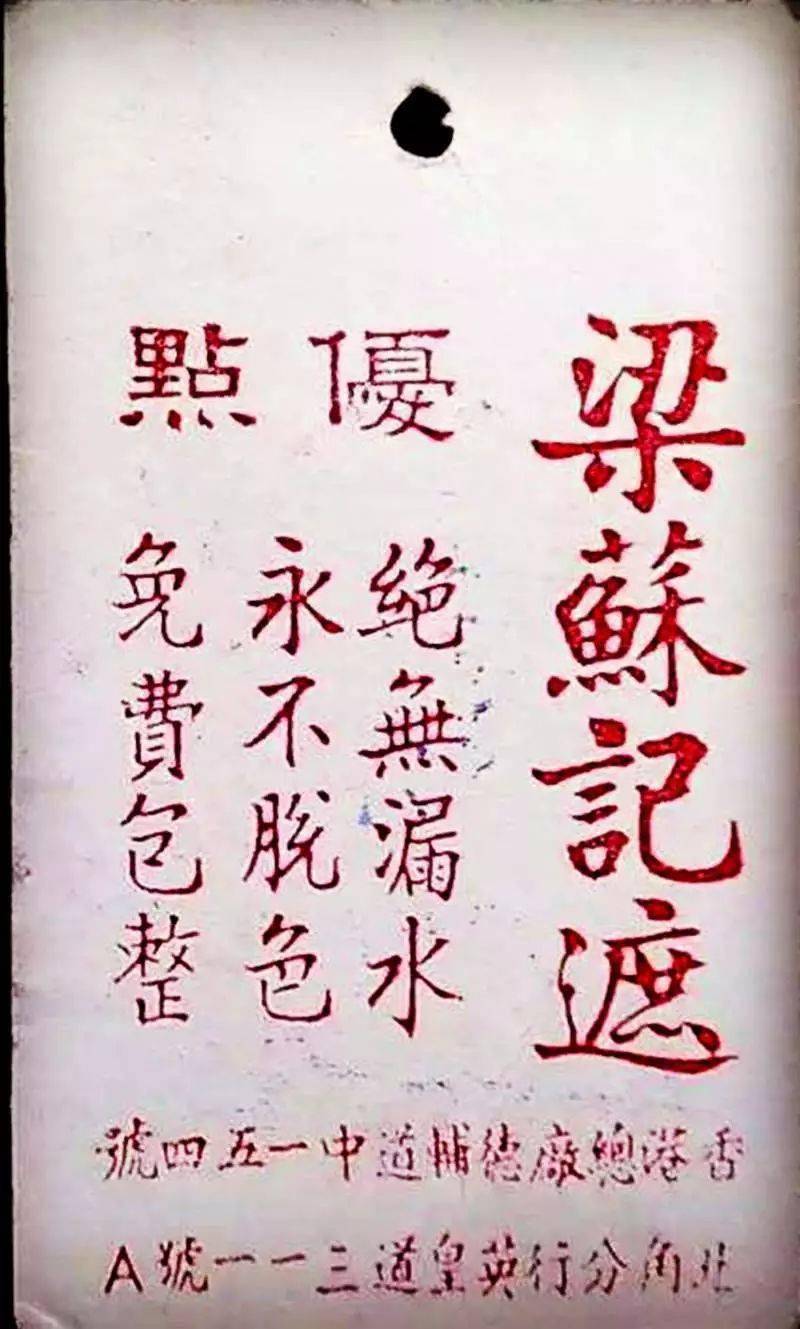 梁蘇記遮
優點
絕無漏水
永不脫色
免費包整
香港總廠德輔道中一五四號
北角分行英皇道三一一號A